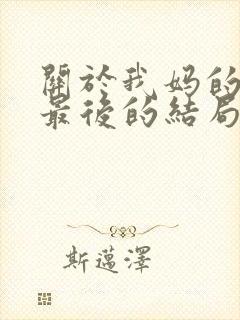 關於我妈的
最後的結局
斯邁澤